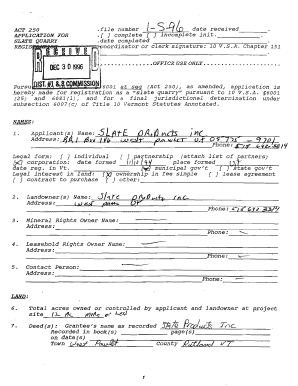 ACT 250 .file number 1-S-96 date received
APPLICATION FOR [ ] complete [ ] incomplete init.
SLATE QUARRY .date completed
REGISTRATION coordinator or clerk signature: 10 V.S.A. Chapter 151
RECEIVED
DEC 30 1996
DIST. #1 & 8 COMMISSION
OFFICE USE ONLY
Pursuant 6001 et seq (ACT 250), as amended, application is
hereby made for registration as a "slate quarry" pursuant to 10 V.S.A. §6001
(25) and 6081(l), and for a final jurisdictional determination under
section 6007(c) of Title 10 Vermont Statutes Annotated.
NAMES:
1. Applicant(s) Name: SLATE Products inc
Address: RR1 Box 146 West Pawlet VT 05775-9701
Phone: 518 642 3314
Legal form: [ ] individual [ ] partnership (attach list of partners)
corporation date formed place formed VT
date reg. in Vt. municipal gov't [ ] state gov't
Legal interest in land: ownership in fee simple [ ] lease agreement
[ ] contract to purchase [ ] other:
2. Landowner(s) Name: Slate Products inc
Address: West Pawlet VT
Phone: 518 642 3314
3. Mineral Rights Owner Name:
Address:
Phone:
4. Leasehold Rights Owner Name:
Address:
Phone:
5. Contact Person:
Address:
Phone:
LAND:
6. Total acres owned or controlled by applicant and landowner at project
site 12 Ac more or less
7. Deed(s): Grantee's name as recorded Slate Products Inc
Recorded in book(s) page(s)
on date(s)
Town West Pawlet County Rutland VT
1